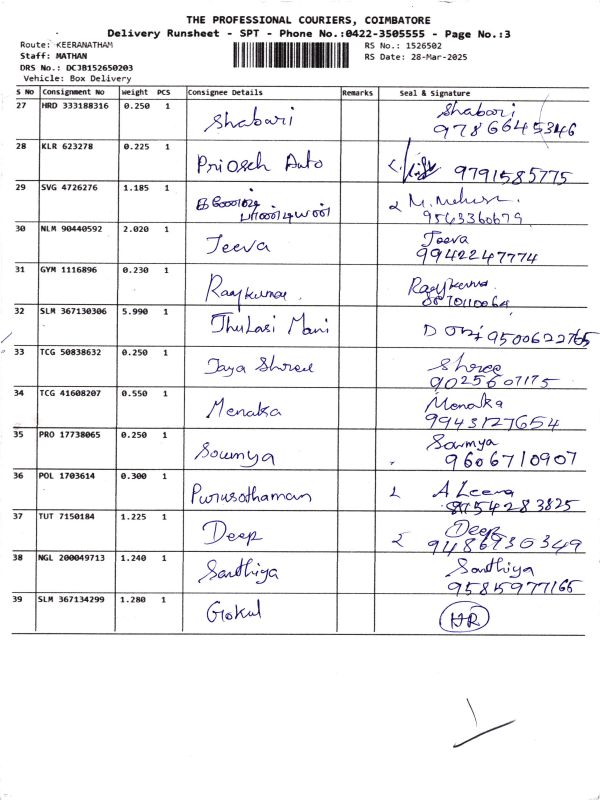 THE PROFESSIONAL COURIERS, COIMBATORE
Delivery Runsheet - SPT - Phone No.:0422-3505555 - Page No.:3
Route: KEERANATHAM RS No.: 1526502
Staff: MATHAN RS Date: 28-Mar-2025
DRS No.: DCJB152650203
Vehicle: Box Delivery
S No Consignment No Weight PCS Consignee Details Remarks Seal & Signature
27 HRD 333188316 0.250 1 Shabari Shabari
9786645346
28 KLR 623278 0.225 1 Priosch Auto 9791585775
29 SVG 4726276 1.185 1
9563360679
30 NLM 90440592 2.020 1 Jeeva Jeeva
9942247774
31 GYM 1116896 0.230 1 Raajkumar
32 SLM 367130306 5.990 1 Thulasi Mani 9500622765
33 TCG 50838632 0.250 1 Jaya Shree Shree
9025607175
34 TCG 41608207 0.550 1 Menaka Menaka
9943127654
35 PRO 17738065 0.250 1 Sowmya Sowmya
9606710907
36 POL 1703614 0.300 1 Purusothaman A Leena
37 TUT 7150184 1.225 1 Deep Deep
38 NGL 200049713 1.240 1 Santhiya Santhiya
9585977166
39 SLM 367134299 1.280 1 Gokul HR